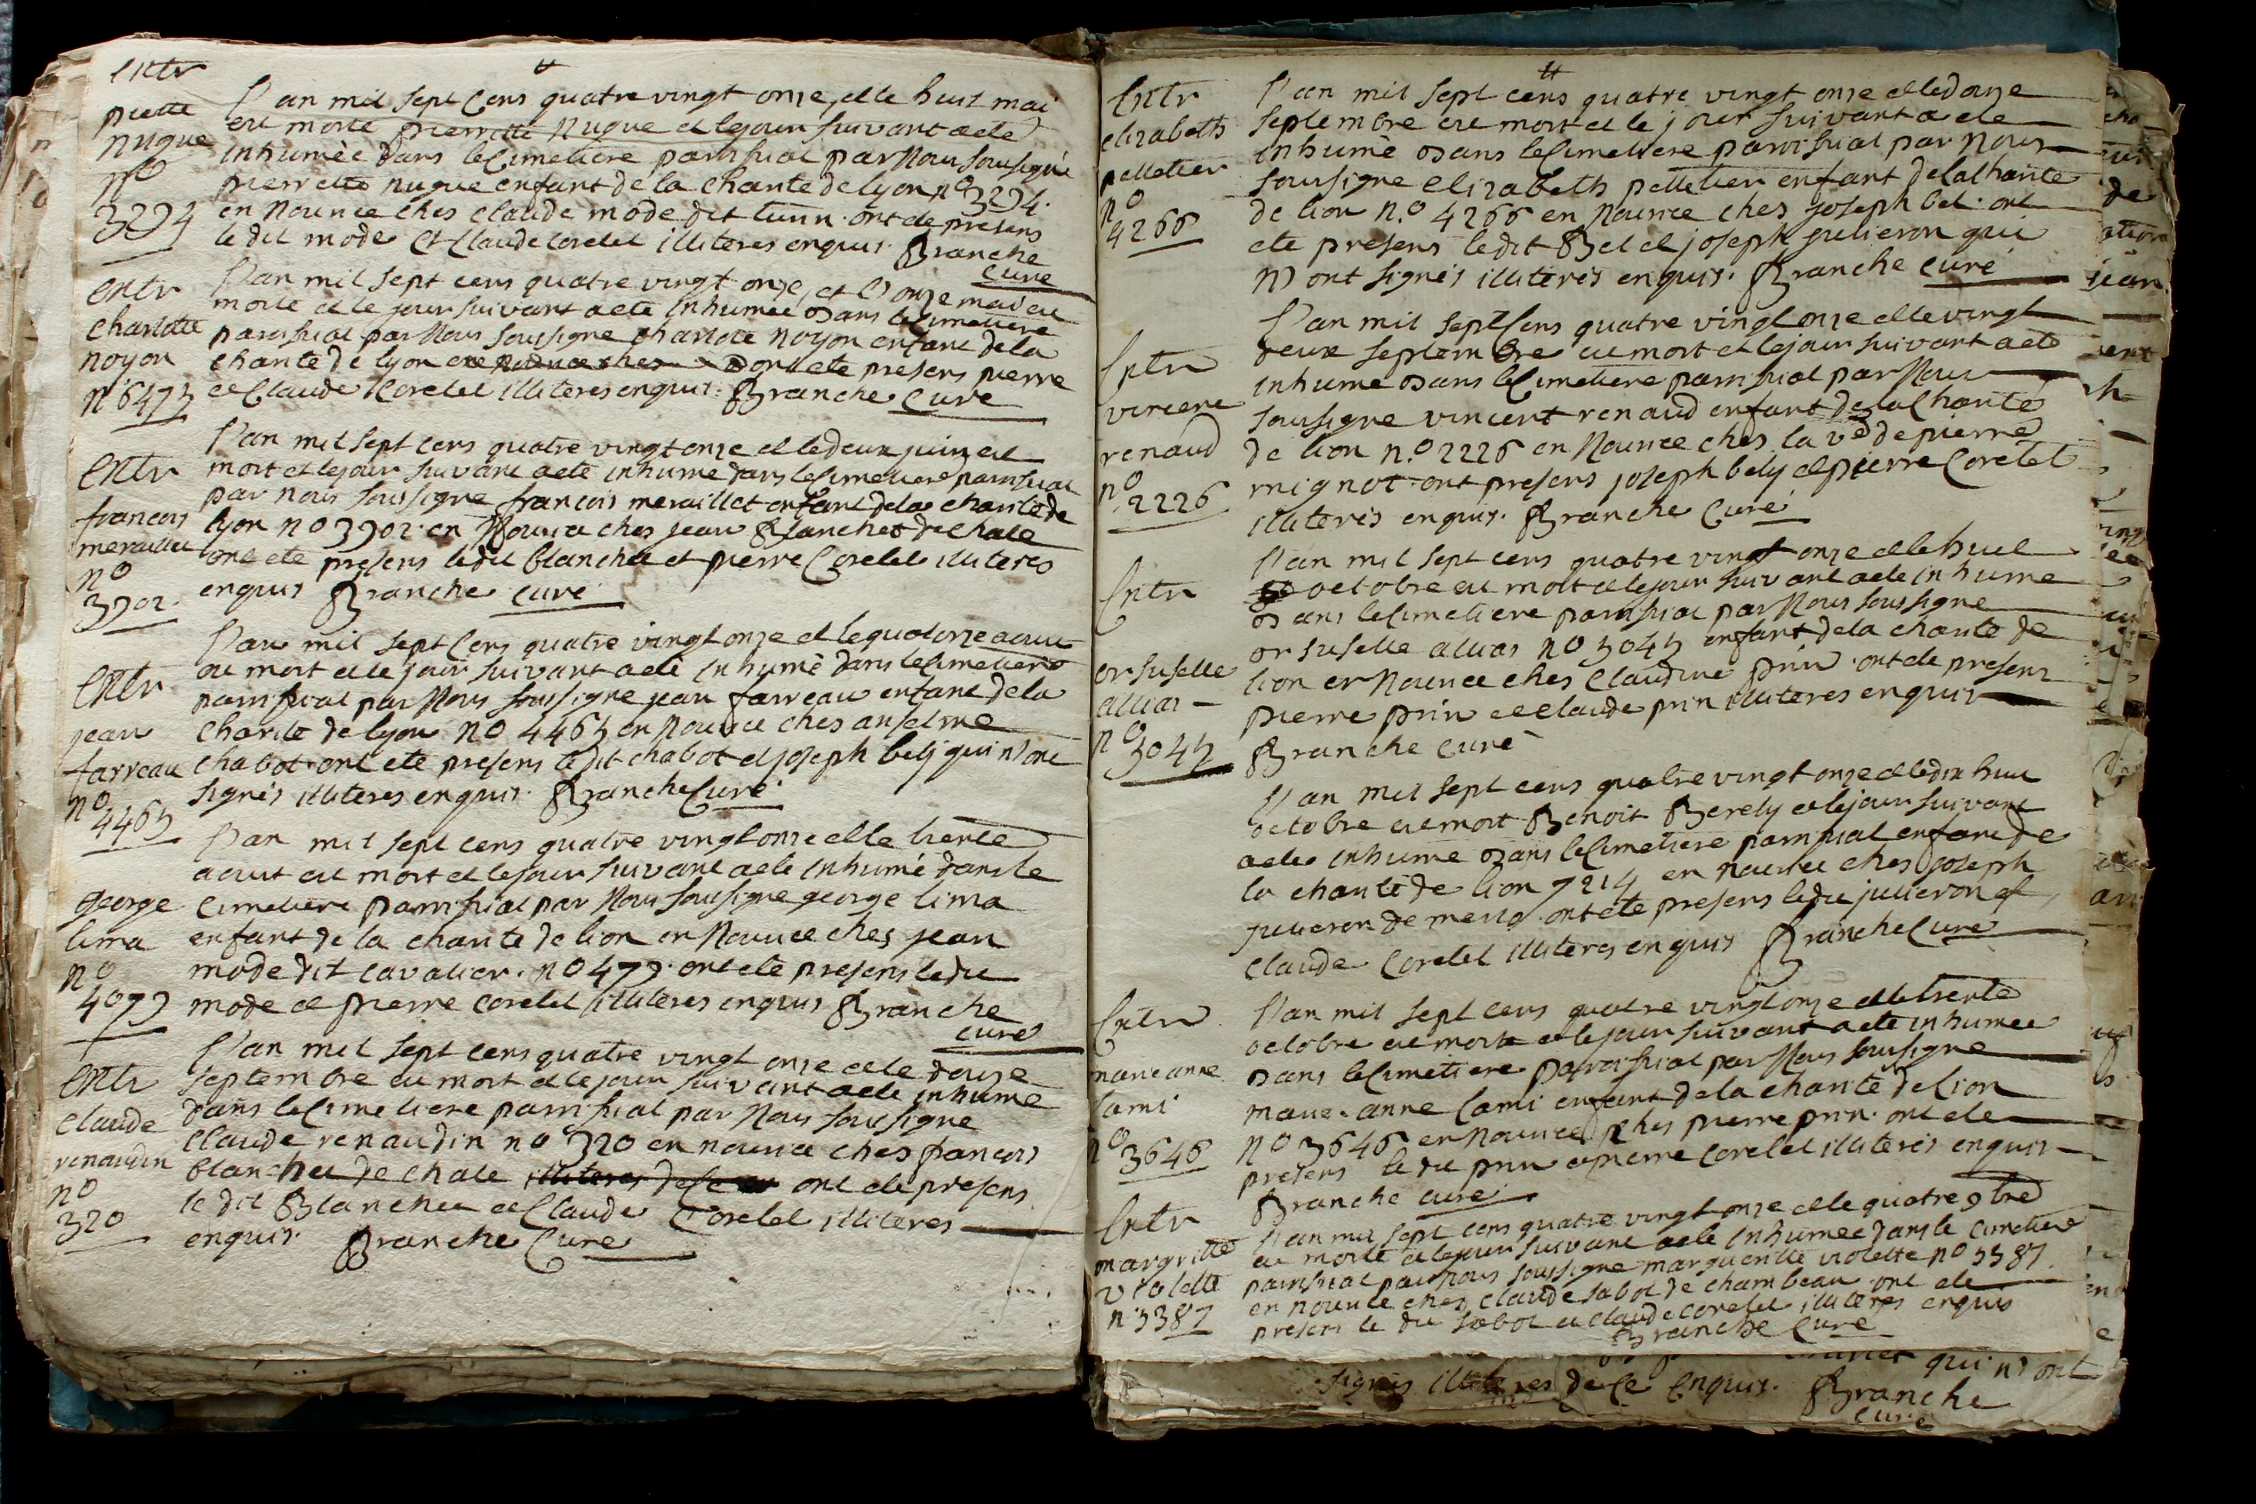 Entr
pierette
nugue
no
3294
L'an mil sept cens quatre vingt onze, et le huit mai
est morte pierrette Nugue et le jour suivant a ete
inhumèe dans le Cimetiere paroissial par Nous soussigné
pierrette nugue enfant de la charite de lyon no 3294.
en Nourice ches claude mode dit lunn. ont ete presens
le dit mode et Claude Corelet illiteres enquis. Branche
curé
Entr
charlotte
noyon
no 6473
L'an mil sept cens quatre vingt onze, et l'onze mai est
morte et le jour suivant a ete inhumée dans le Cimetiere
paroissial par Nous soussigne charlote noyon enfant de la
charite de lyon ont ete presens pierre
et Claude Corelet illiteres enquis. Branche Curé
Entr
francois
meraillet
no
3902.
L'an mil sept cens quatre vingt onze et le deux juin est
mort et le jour suivant a ete inhumé dans le Cimetiere paroissial
par nous soussigne francois meraillet enfant de la charite de
lyon no 3902. en Nourice ches jean Blanchet de chale
ont ete presens le dit blanchet et pierre Corelet illiteres
enquis Branche curé
Entr
jean
farreau
no
4465
L'an mil sept cens quatre vingt onze et le quatorze aout
est mort et le jour suivant a ete inhumé dans le Cimetiere
paroissial par Nous soussigne jean farreau enfant de la
charite de lyon no 4465 en Nourice ches anselme
chabot. ont ete presens le dit chabot et joseph bely qui n'ont
signés illiteres enquis. Branche Curé
george
lima
no
4079
L'an mil sept cens quatre vingt onze et le trente
aout est mort et le jour suivant a ete inhumé dans le
cimetiere paroissial par Nous soussigne george lima
enfant de la charite de lion en Nourice ches jean
mode dit cavalier. no 479. ont ete presens le dit
mode et pierre corelet illiteres enquis Branche
curé
Entr
claude
renaudin
no
320
L'an mil sept cens quatre vingt onze et le douze
septembre est mort et le jour suivant a ete inhumé
dans le Cimetiere paroissial par Nous soussigne
claude renaudin no 320 en nourice ches francois
blanchet de chale illiteres de ce ont ete presens
le dit Blanchet et Claude Corelet illiteres
enquis. Branche Curé
Entr
elizabeth
pelletier
no
4266
L'an mil sept cens quatre vingt onze et le douze
septembre est mort et le jour suivant a ete
inhumé dans le Cimetiere paroissial par Nous
soussigne elizabeth pelletier enfant de la charite
de lion n.o 4266 en Nourice ches joseph bel. ont
ete presens le dit Bel et joseph julieron qui
n'ont signés illiteres enquis. Branche curé
Entr
vincent
renaud
no
2226
L'an mil sept Cens quatre vingt onze et le vingt
deux septembre est mort et le jour suivant a ete
inhume dans le Cimetiere paroissial par Nous
soussigne vincent renaud enfant de la Charité
de lion n.o 2226 en Nourice ches la ve de pierre
mignot. ont presens joseph bely et pierre Corelet
illiterés enquis. Branche Curé
Entr
orsuselle
alivas
no
3045
L'an mil sept cens quatre vingt onze et le huit
octobre est mort et le jour suivant a ete inhume
dans le Cimetiere paroissial par Nous soussigne
orsuselle alivas no 3045 enfant de la charite de
lion en Nourice ches Claudine prin. ont ete presens
pierre prin et claude prin illiteres enquis
Branche curé
L'an mil sept cens quatre vingt onze et le dix huit
octobre est mort Benoit Berely et le jour suivant
a ete inhumé dans le Cimetiere paroissial enfant de
la charité de lion 7214 en nourice ches joseph
julieron de ont ete presens le dit julieron et
Claude Corelet illiteres enquis Branche Curé
Entr
marie anne
lami
no
3646
L'an mil sept cens quatre vingt onze et le trente
octobre est morte et le jour suivant a ete inhumée
dans le Cimetiere paroissial par Nous soussigne
marie. anne lami enfant de la charite de Lion
no 3646 en Nourice ches pierre prin. ont ete
presens le dit prin et pierre Corelet illiterés enquis
Branche curé
Entr
margritte
violette
no 3387
L'an mil sept cens quatre vingt onze et le quatre 9bre
est morte et le jour suivant a ete inhumée dans le cimetiere
paroissial par nous soussigne marguerite violette no 3387
en nourice ches Claude sabot de chambeau. ont ete
presens le dit sabot et claude corelet illiteres enquis
Branche Curé
qui n'ont
signés illiteres de ce enquis. Branche
curé